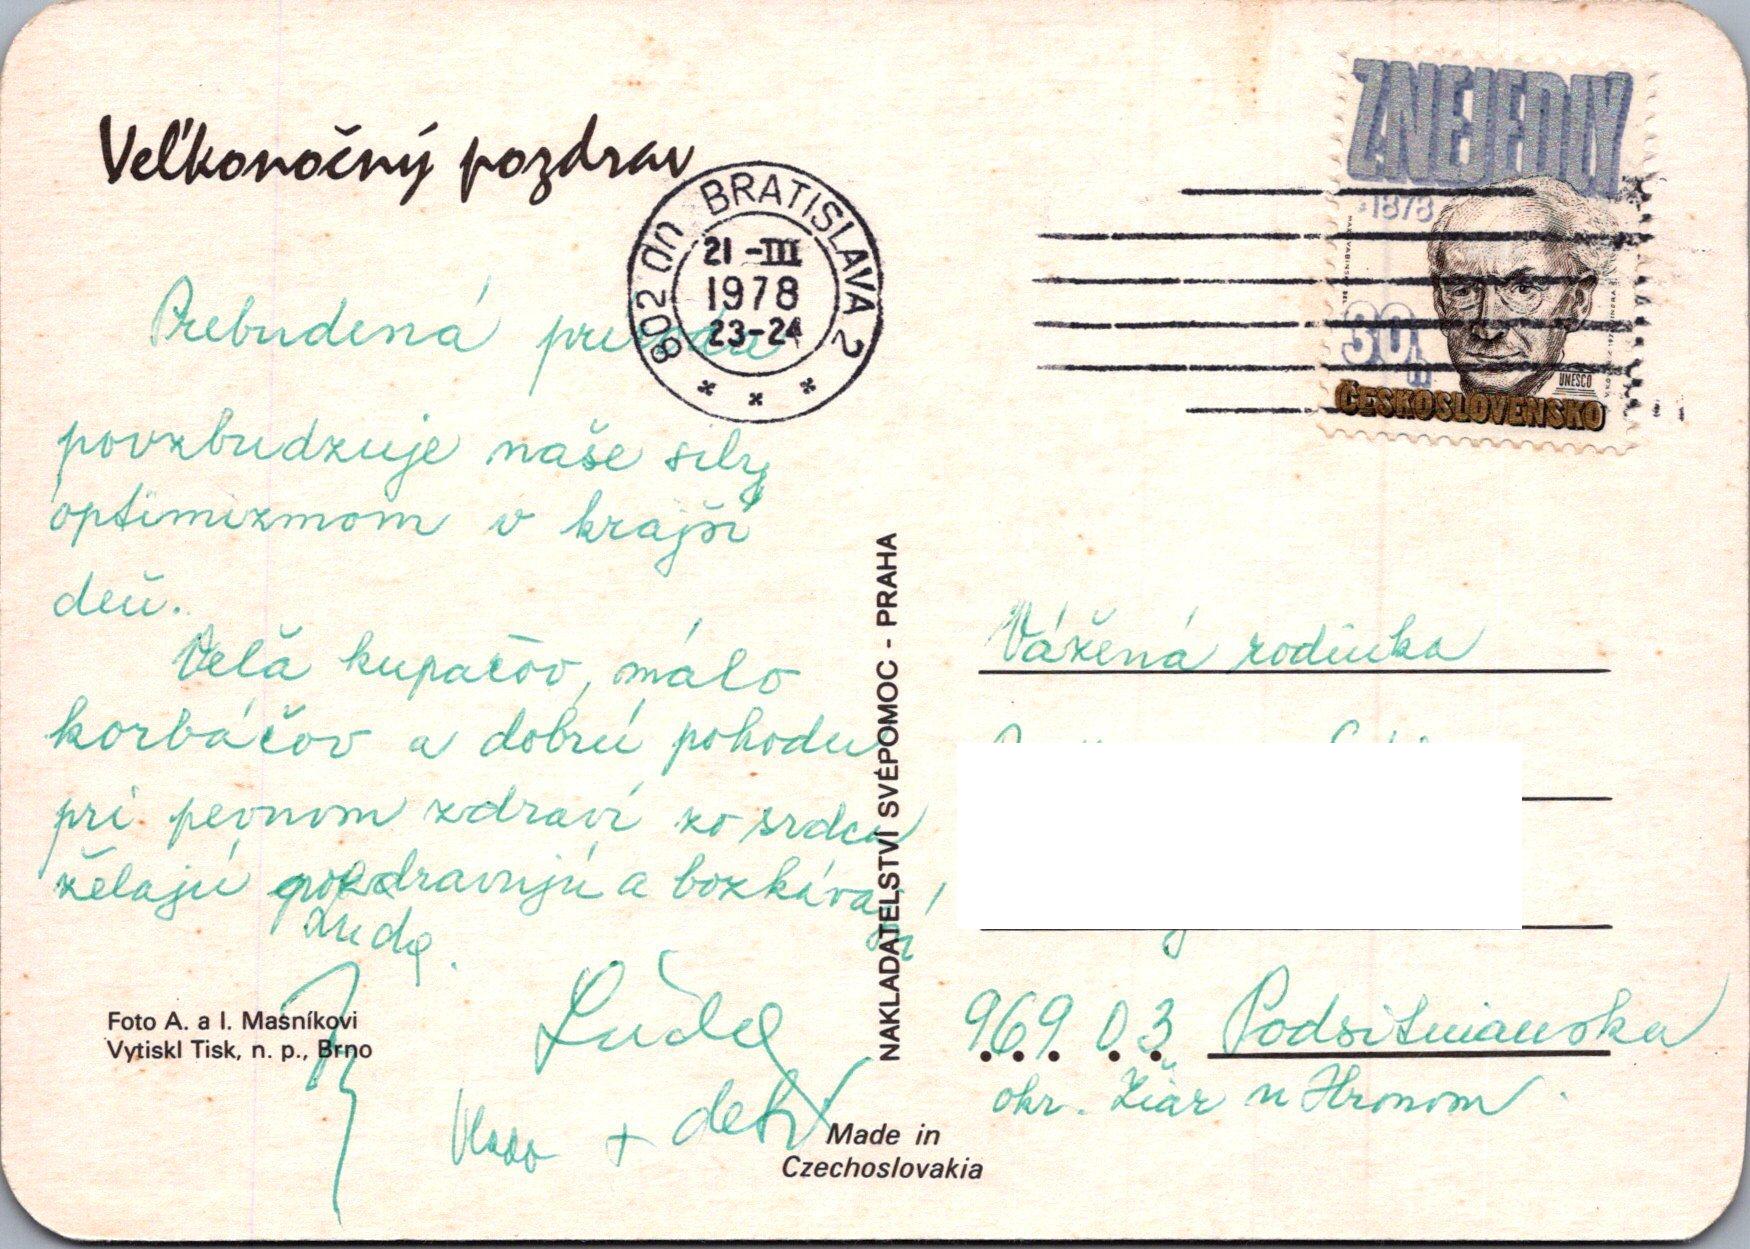 Veľkonočný pozdrav
802 00 BRATISLAVA 2
21-III
1978
23-24
ZNEJEDLÝ
*1878
30h
UNESCO
ČESKOSLOVENSKO
Prebudená príroda
povzbudzuje naše sily
optimizmom v krajší
deň.
Veľa kupačov, málo
korbáčov a dobrú pohodu
pri pevnom zdraví zo srdca
želajú pozdravujú a bozkávajú
Ľuda
Vlado + deti
Foto A. a I. Masníkovi
Vytiskl Tisk, n. p., Brno
NAKLADATELSTVÍ SVÉPOMOC - PRAHA
Made in
Czechoslovakia
Vážená rodinka
969 03 Podsitnianska
okr. Žiar n Hronom